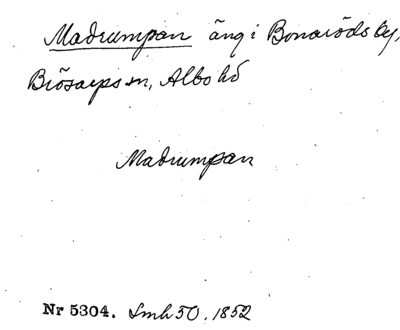 Madrumpan äng i Bonaröds by,
Brösarps sn, Albo hd
Madrumpan
Nr 5304. Smh 50. 1852